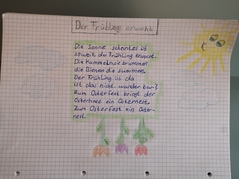 Der Frühling erwacht
Die Sonne scheint es ist
so weit der Frühling erwacht.
Die Hummel brummt
die Bienen die summen.
Der Frühling ist da
ist das nicht wunderbar?
Zum Osterfest bringt der
Osterhase ein Osternest.
Zum Osterfest ein Oster-
nest.